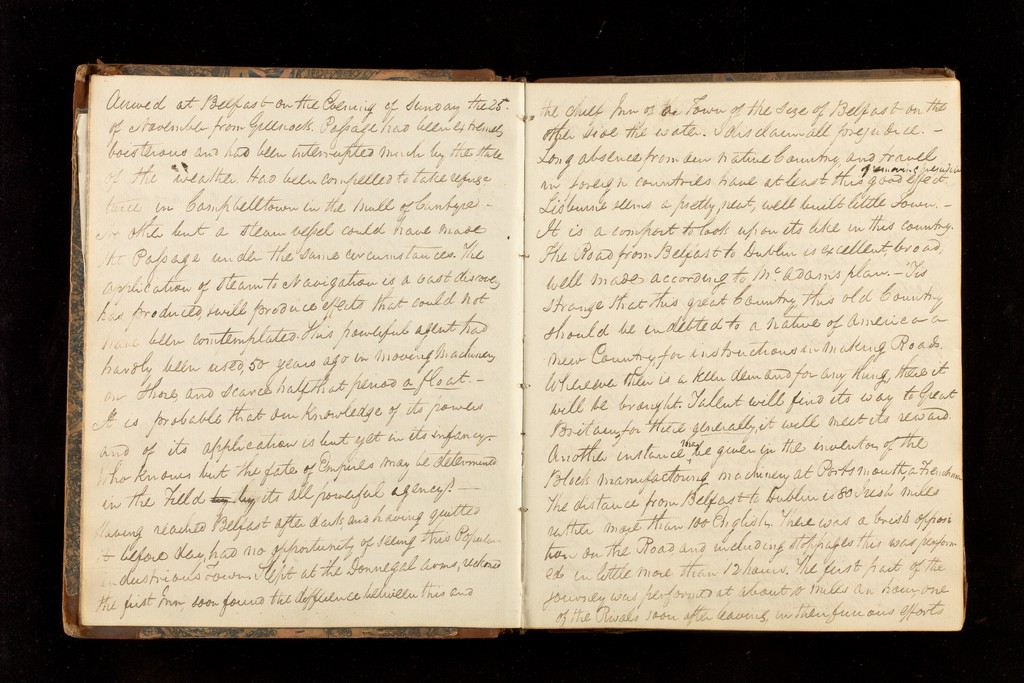 Arrived at Belfast on the Evening of Sunday the 25th
of November from Greenock. Passage had been extremely
boisterous and had been interrupted much by the state
of the weather. Had been compelled to take refuge
twice in Campbelltown in the Mull of Cantyre –
No other but a steam vessel could have made
the Passage under the same circumstances. The
application of Steam to Navigation is a vast discovery
has produced, will produce effects that could not
have been contemplated. This powerful agent had
hardly been used 50 years ago in moving Machinery
on Shore, and scarce half that period afloat. –
It is probable that our knowledge of its powers
and of its application is but yet in its infancy.
Who knows but the fate of Empires may be determined
in the Field by its all powerful agency? –
Having reached Belfast after dark and having quitted
it before day, had no opportunity of seeing this Popular
industrious Town. Slept at the Donnegal Arms, reckoned
the first Inn, soon found the difference between this and
the Chief Inn of a Town of the size of Belfast on the
other side the water. I disclaim all prejudice. –
Long absence from our native Country and travel
in foreign countries have at least this good effect of removing prejudice
Lisburne seems a pretty, neat, well built little Town. –
It is a comfort to look upon its like in this country.
The Road from Belfast to Dublin is excellent, broad,
well made according to Mc Adam's plan. – 'Tis
strange that this great Country, this old Country
should be indebted to a native of America – a
new Country, for instructions in making Roads.
Wherever there is a keen demand for any thing, there it
will be brought. Talent will find its way to Great
Britain, for there generally, it will meet its reward.
Another instance may be given in the inventor of the
Block manufacturing machinery at Portsmouth, a Frenchman
The distance from Belfast to Dublin is 80 Irish miles
rather more than 100 English. There was a brisk opposi
tion on the Road and including stoppages this was perform
ed in little more than 12 hours. The first part of the
journey was performed at about 10 miles an hour, one
of the Rivals soon after leaving, in their furious efforts